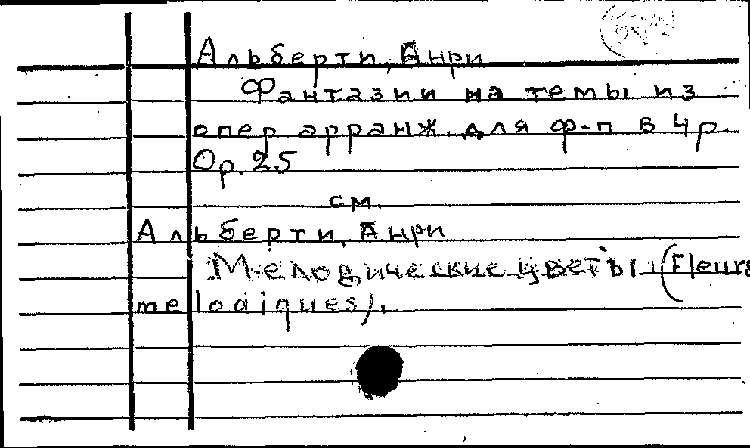 Альберти, Анри
Фантазии на темы из
опер арранж. для ф-п в 4 р.
Op. 25
см.
Альберти, Анри
Мелодические цветы (Fleurs
melodiques).